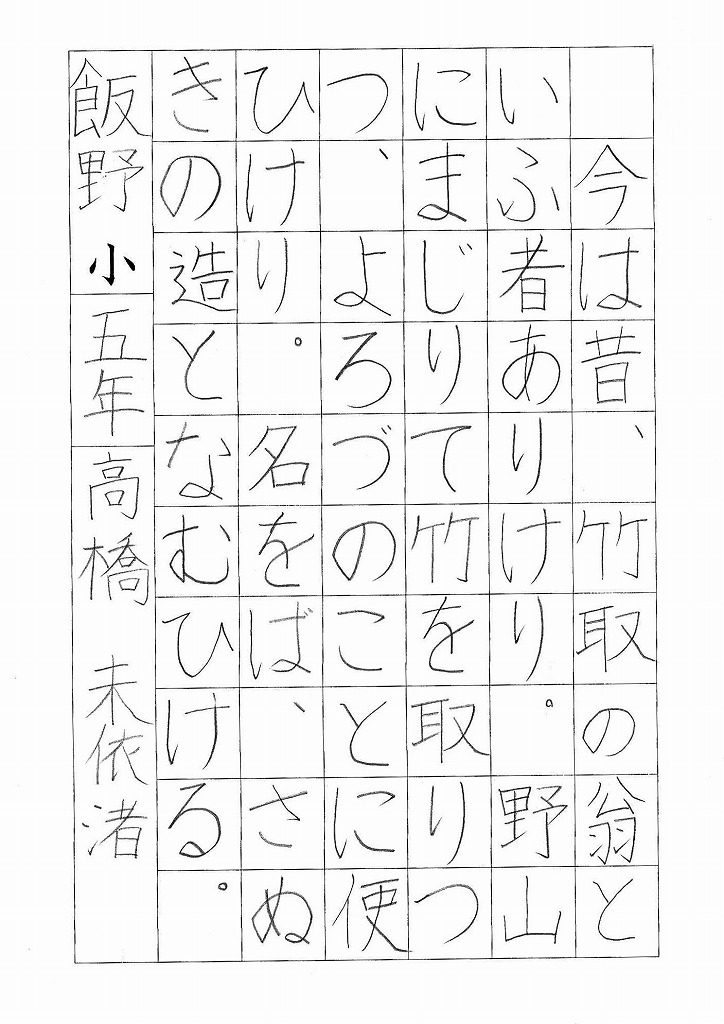 今は昔、竹取の翁と
いふ者ありけり。野山
にまじりて竹を取りつ
つ、よろづのことに便
ひけり。名をば、さぬ
きの造となむひける。
飯野小 五年 高橋 未依渚